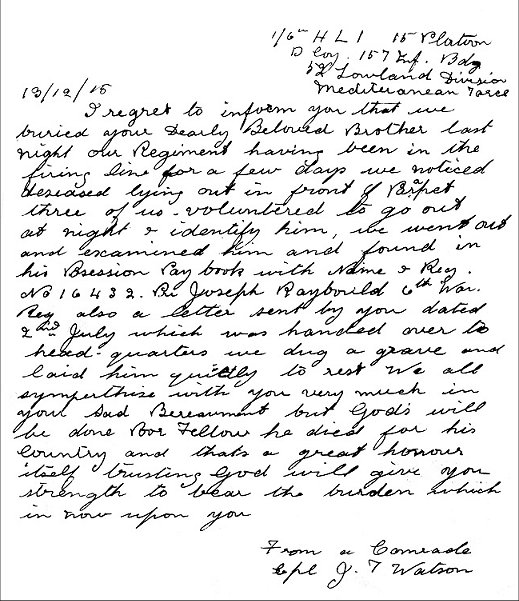 1/6th H L I 15 Platoon
D Coy. 157 Inf. Bdg
52 Lowland Division
Mediteranean Force
13/12/15
I regret to inform you that we
buried your Dearly Beloved Brother last
night our Regiment having been in the
firing line for a few days we noticed
deseased lying out in front of
three of us volunteered to go out
at night & identify him, we went out
and examined him and found in
his Possession Pay book with Name & Reg.
No 16432. Pri Joseph Raybould 6th War.
Reg also a letter sent by you dated
2nd July which was handed over to
head-quarters we dug a grave and
laid him quietly to rest We all
sympathize with you very much in
your sad Bereaument but God's will
be done Poor Fellow he died for his
Country and thats a great honour
itself trusting God will give you
strength to bear the burden which
in now upon you
From a Comrade
Cpl J. T Watson